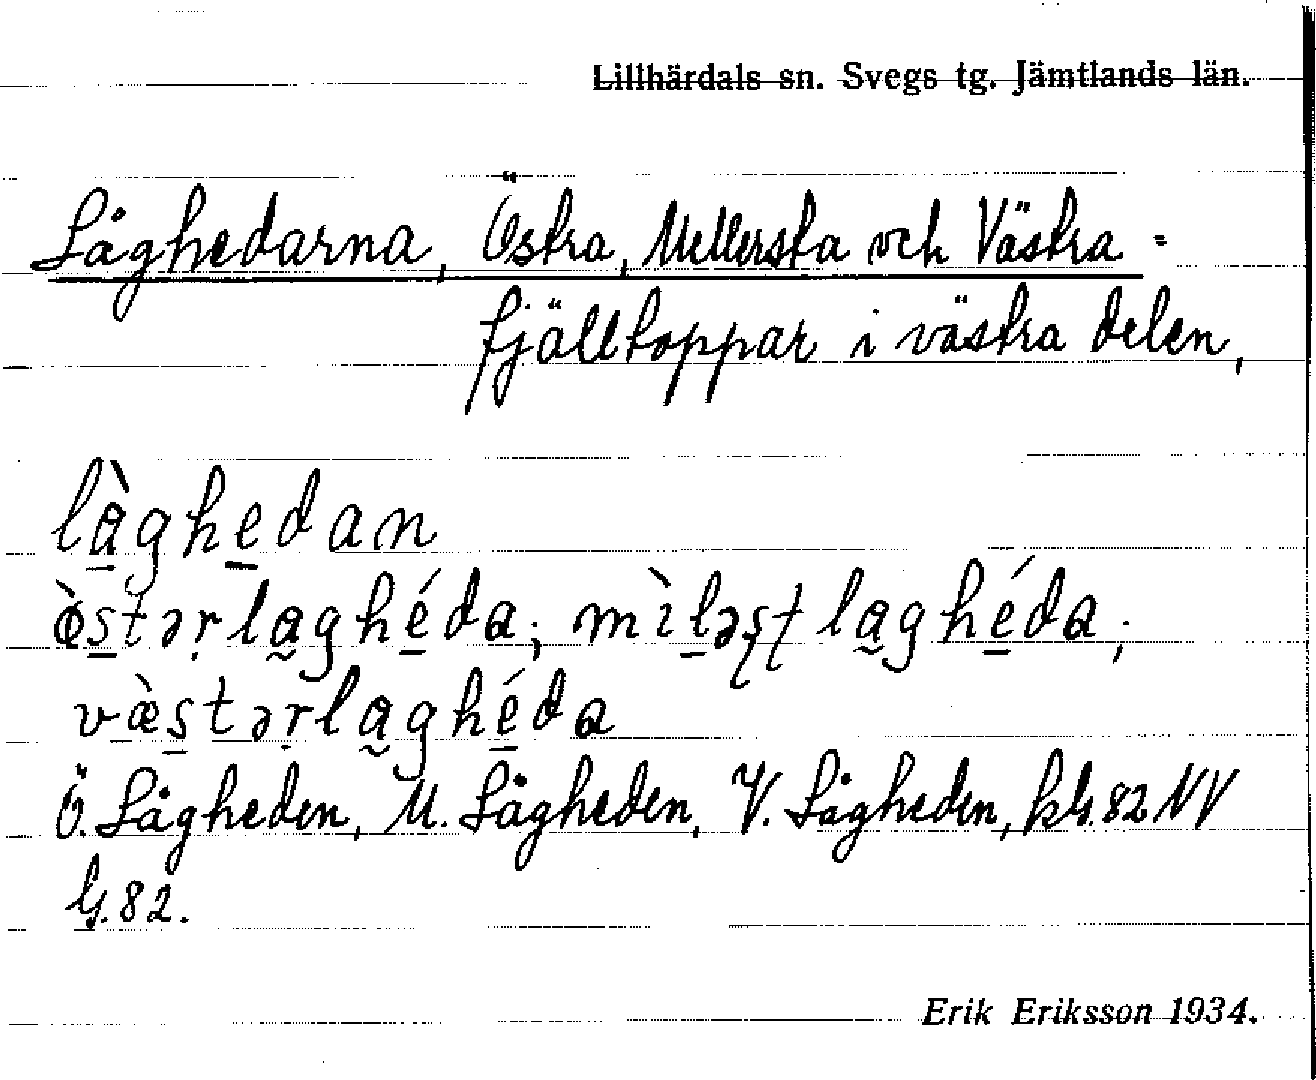 Lillhärdals sn. Svegs tg. Jämtlands län.
Låghedarna, Östra, Mellersta och Västra =
fjälltoppar i västra delen,
làg̀hedan
ǿ̀stərlaghéda; mìləstlaghéda;
væ̀stərlaghéda
Ö. Lågheden, M. Lågheden, V. Lågheden, kbl. 82 NV
bl. 82.
Erik Eriksson 1934.